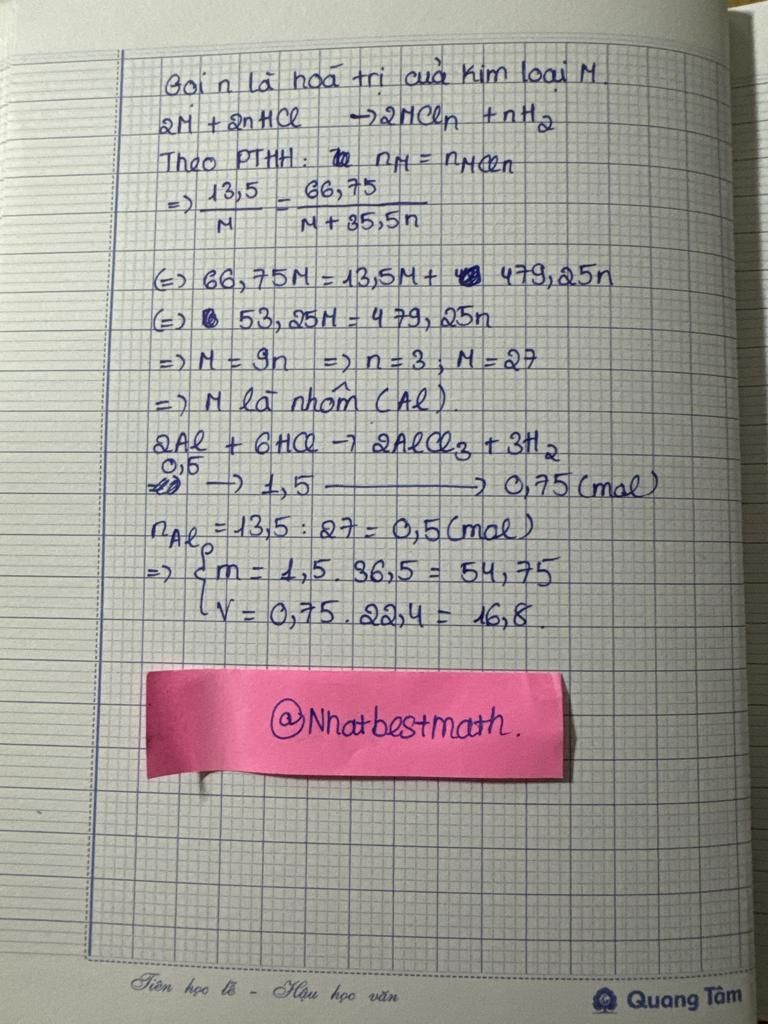 Gọi n là hoá trị của kim loại M.
2M + 2nHCl → 2MCln + nH2
Theo PTHH: nM = nMCln
=> 13,5/M = 66,75/M + 35,5n
(=) 66,75M = 13,5M + 479,25n
(=) 53,25M = 479,25n
=> M = 9n => n = 3; M = 27
=> M là nhôm (Al).
2Al + 6HCl → 2AlCl3 + 3H2
0,5 → 1,5 → 0,75 (mol)
nAl = 13,5 : 27 = 0,5 (mol)
=> { m = 1,5 . 36,5 = 54,75
V = 0,75 . 22,4 = 16,8.
@Nhatbestmath.
Tiên học lễ - Hậu học văn
Quang Tâm